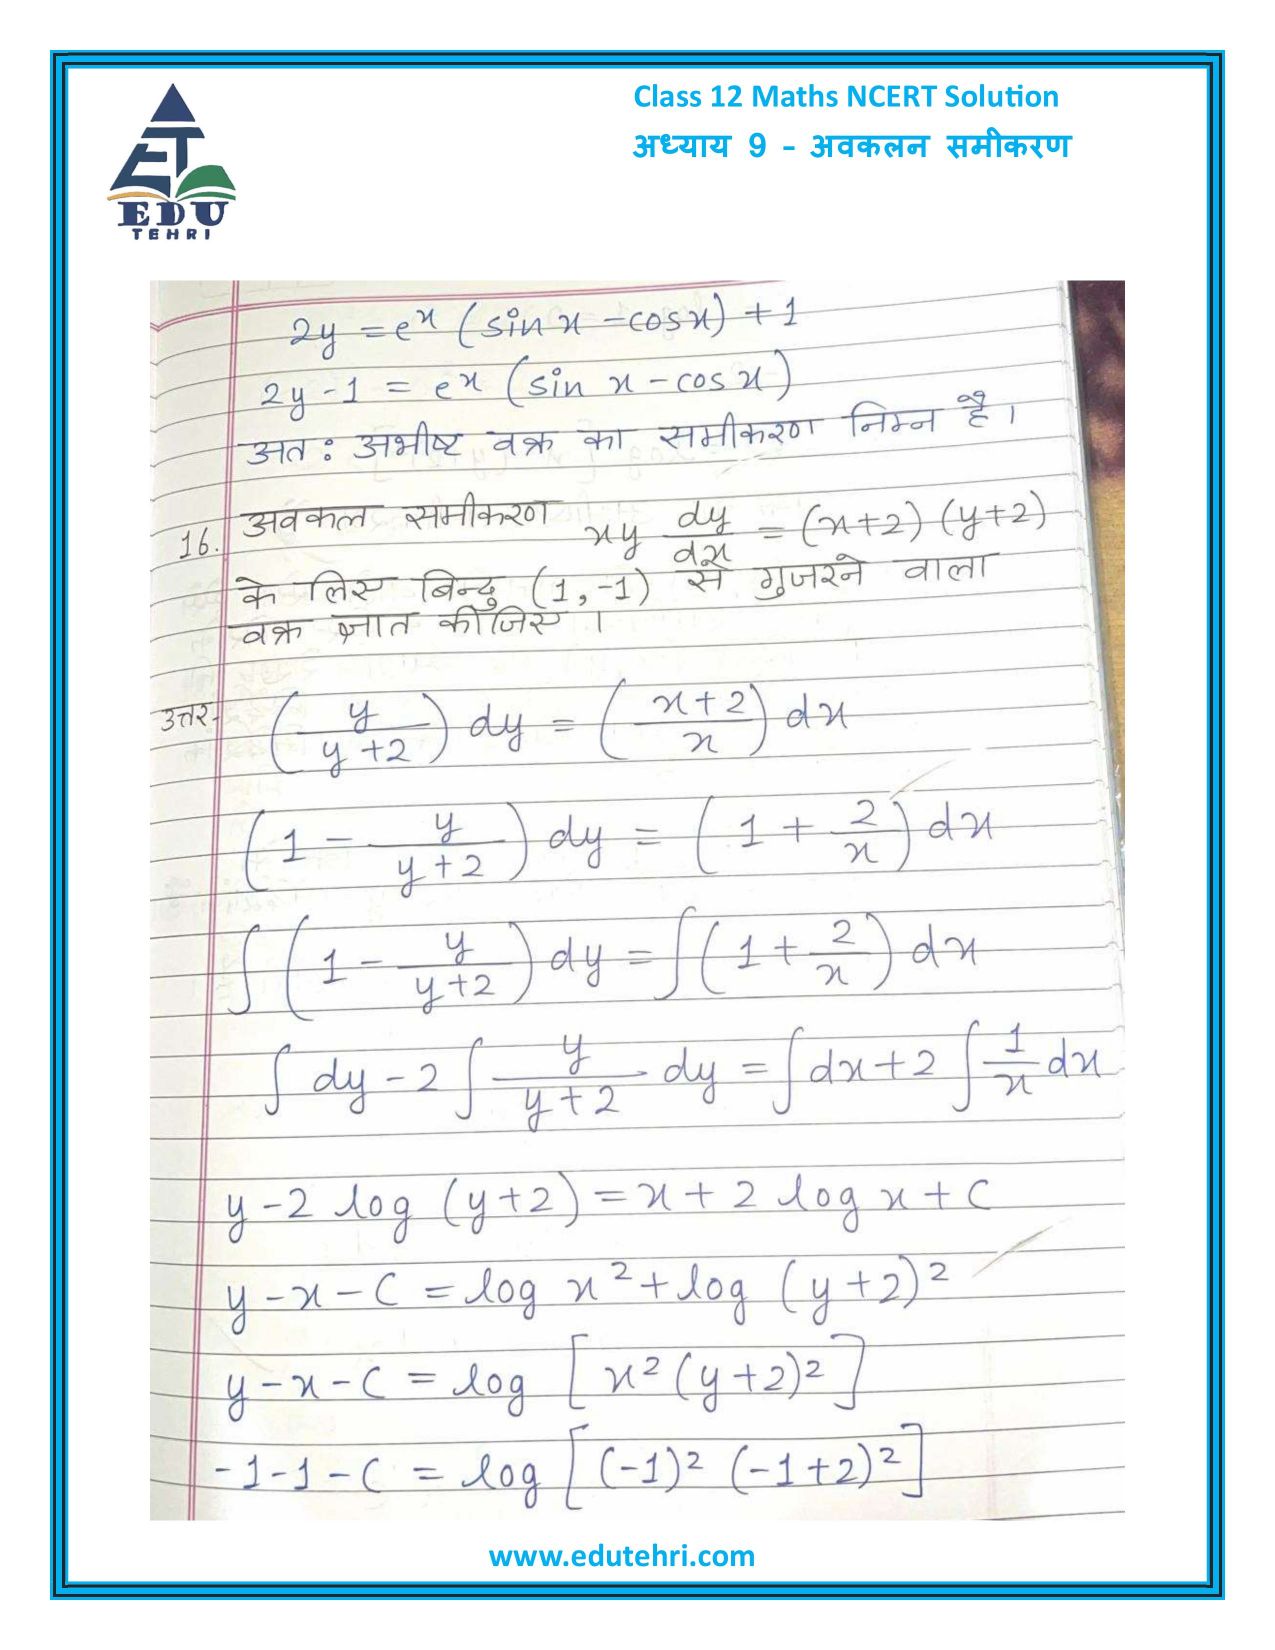 Class 12 Maths NCERT Solution
अध्याय 9 - अवकलन समीकरण
EDU
TEHRI
2y = eˣ (sin x - cos x) + 1
2y - 1 = eˣ (sin x - cos x)
अत: अभीष्ट वक्र का समीकरण निम्न है।
16. अवकल समीकरण xy dy/dx = (x+2) (y+2)
के लिए बिन्दु (1, -1) से गुजरने वाला
वक्र ज्ञात कीजिए।
उत्तर- (y/(y+2)) dy = ((x+2)/x) dx
(1 - y/(y+2)) dy = (1 + 2/x) dx
∫ (1 - y/(y+2)) dy = ∫ (1 + 2/x) dx
∫ dy - 2 ∫ y/(y+2) dy = ∫ dx + 2 ∫ 1/x dx
y - 2 log (y+2) = x + 2 log x + C
y - x - C = log x² + log (y+2)²
y - x - C = log [x² (y+2)²]
-1 - 1 - C = log [(-1)² (-1+2)²]
www.edutehri.com